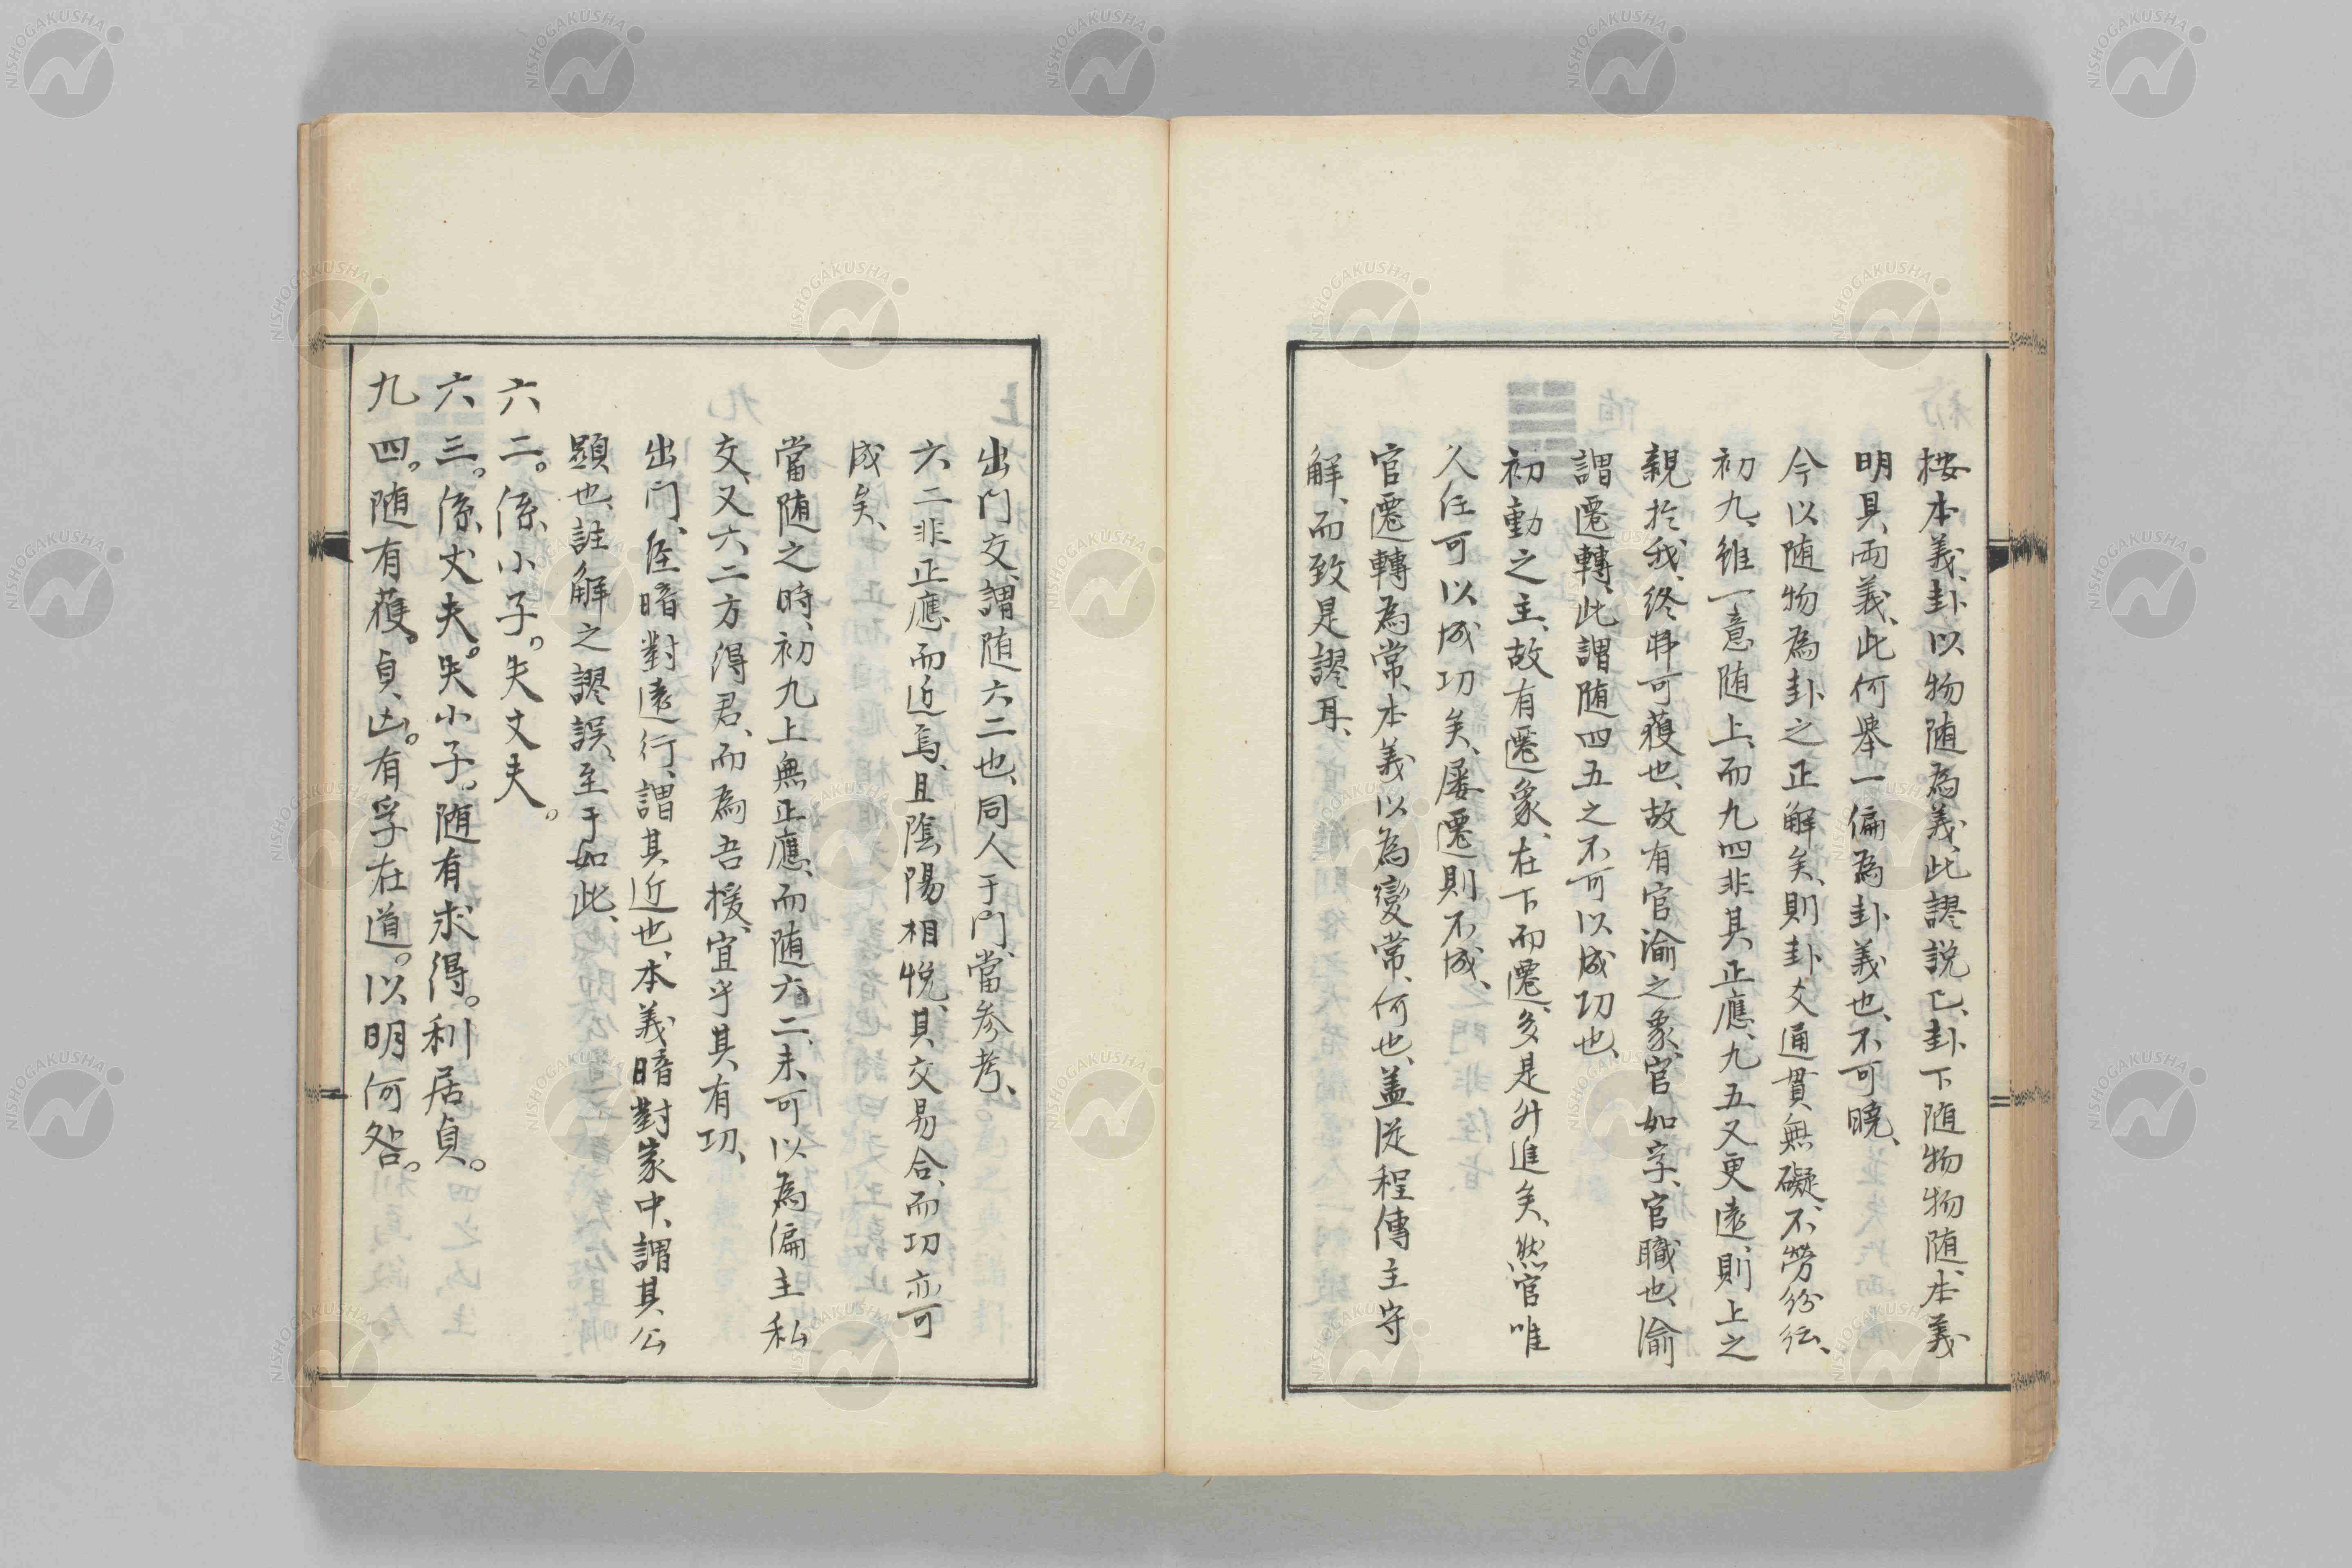 按本義、卦以物随為義、此謬説已、卦下随物物随、本義
明具兩義、此何舉一偏為卦義也、不可曉、
今以随物為卦之正解矣、則卦爻通貫無礙、不勞紛紜、
初九、維一意随上、而九四非其正應、九五又更遠、則上之
親於我、終弗可獲也、故有官渝之象、官如字、官職也、渝
謂遷轉、此謂随四五之不可以成功也、
初動之主、故有遷象、在下而遷、多是升進矣、然官唯
久任可以成功矣、屡遷則不成、
官遷轉為常、本義以為變常、何也、蓋從程傳主守
解、而致是謬耳、
出門交、謂随六二也、同人于門、當参考、
六二非正應而近焉、且陰陽相悦、其交易合、而功亦可
成矣、
當随之時、初九上無正應、而随六二、未可以為偏主私
交、又六二方得君、而為吾援、宜乎其有功、
出門、侄暗對遠行、謂其近也、本義暗對家中、謂其公
顕也、註解之謬誤、至于如此、
六二。係小子。失丈夫。
六三。係丈夫。失小子。随有求得。利居貞。
九四。随有獲。貞凶。有孚在道。以明何咎。
NISHOGAKUSHA